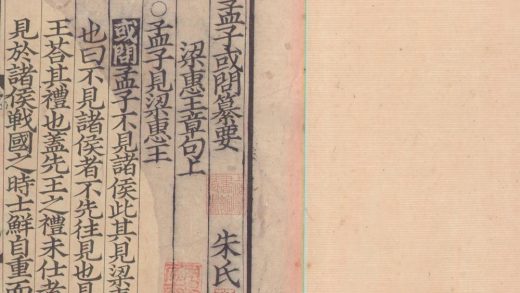 孟子或問纂要 朱氏
梁惠王章句上
○孟子見梁惠王
或問孟子不見諸侯此其見梁惠
也曰不見諸侯者不先往見也見
王荅其禮也蓋先王之禮未仕者
見於諸侯戰國之時士鮮自重而